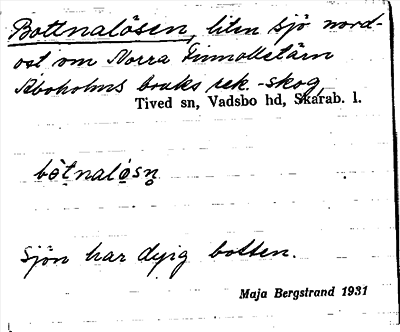 Bottnalösen, liten sjö nord-
ost om Norra Finnolletärn
Åboholms bruks rek.-skog
Tived sn, Vadsbo hd, Skarab. l.
bòtnaløsn̥
Sjön har dyig botten.
Maja Bergstrand 1931